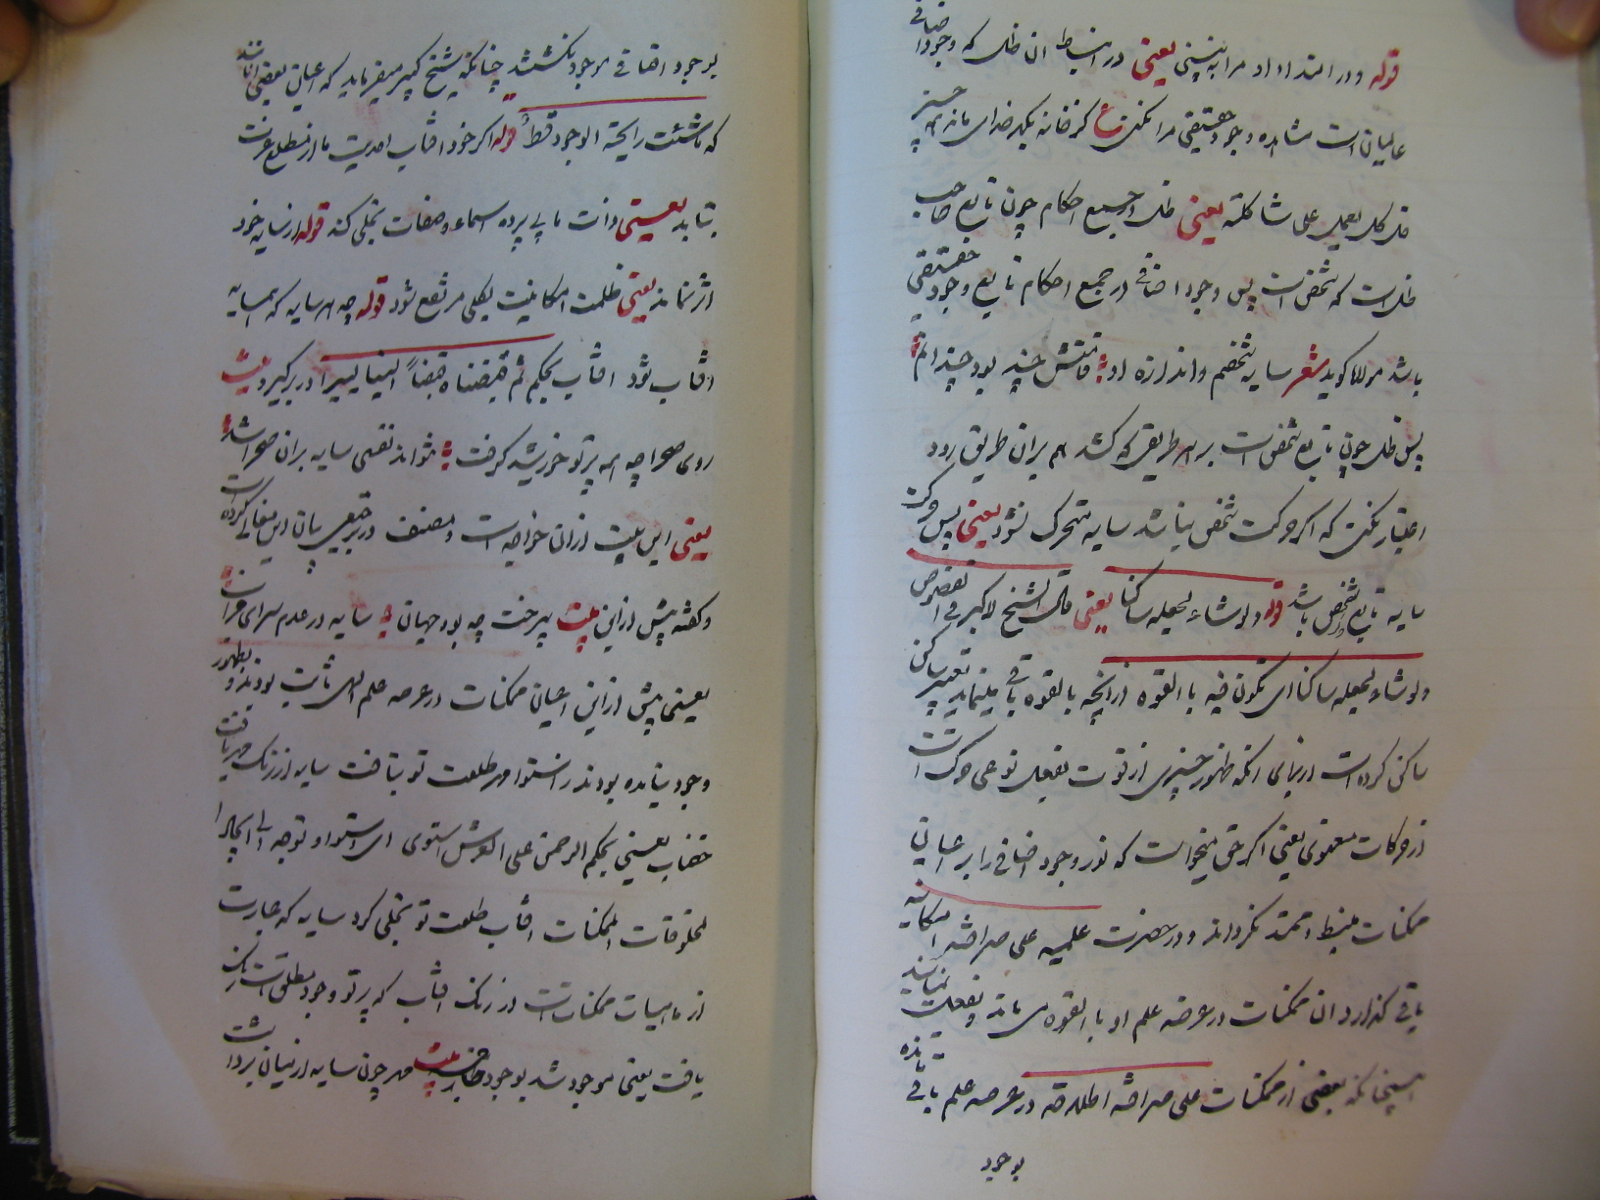 قوله و در امتداد او مرا به بینی یعنی در انبساط ان ظل که وجود اضافی
عالمیان است مشاهده وجود حقیقی مرا بکن ع کز خانه بکدخدای ماند همه چیز
قل کل یعمل علی شاکلته یعنی ظل در جمیع احکام چون تابع صاحب
ظل است که شخص است پس وجود اضافی در جمیع احکام تابع وجود حقیقی
باشد مولانا کوید شعر سایهٔ شخصم و اندازه او قامتش چند بود چندانم
پس ظل چون تابع شخص است بهر طریق که کشد هم بران طریق رود
اعتبار بکن که اکر حرکت شخص نباشد سایه متحرک نشود یعنی پس حرکت
سایه تابع شخص باشد قوله ولو شاء لجعله ساکنا یعنی قال الشیخ الاکبر فی الفصوص
ولو شاء لجعله ساکنا ای یکون فیه بالقوه ازانچه بالقوه باقی میماند تعبیر بساکن
ساکن کرده است از برای انکه ظهور چیزی از قوت بفعل نوعی حرکت است
از حرکات معنوی یعنی اکر حق میخواست که نور وجود اضافی را بر اعیان
ممکنات منبسط و ممتد نکرداند و در حضرت علمیه علی صرافته الامکانیه
باقی کذارد ان ممکنات در عرصه علم او بالقوه می ماند و بفعلیت نیایند
همچنانکه بعضی از ممکنات علی صرافة اطلاقه در عرصه علم باقی مانده
بوجود
بوجود اضافی موجود نکشتند چنانکه شیخ کبیر میفرماید که اعیان بعضی انانند
که ما شمت رایحة الوجود قط قوله اکر خود افتاب احدیت ما از مطلع عزت
بتابد یعنی ذات ما بی پرده اسماء و صفات تجلی کند قوله از سایه خود
اثر نماند یعنی ظلمت امکانیت بکلی مرتفع شود قوله چه هر سایه که همسایه
افتاب شود افتاب بحکم ثم قبضناه قبضاً الینا یسیرا در بر کیرد بیت
روی صحرا چه همه پرتو خورشید کرفت نتواند نفسی سایه بران صحرا شد
یعنی این بیت ازان خواجه است و مصنف در جمعی بیان این معانی کرده است
و کفته پیش ازاین بیت بهر خت چه بود جهان سایه در عدم سرای خراب
یعنی پیش ازاین اعیان ممکنات در عرصه علم الهی ثابت بودند و بظهور
وجود نیامده بودند راستوا مهر طلعت تو بتافت سایه از رنک مهر یافت
خضاب یعنی بحکم الرحمن علی العرش استوی ای استواء و توجه الی ایجاد
المخلوقات الممکنات افتاب طلعت تو تجلی کرد سایه که عبارت
از ماهیات ممکنات است از رنک افتاب که پرتو وجود مطلق است رنک
یافت یعنی موجود شد بوجود بیت مهر چون سایه از میان برداشت